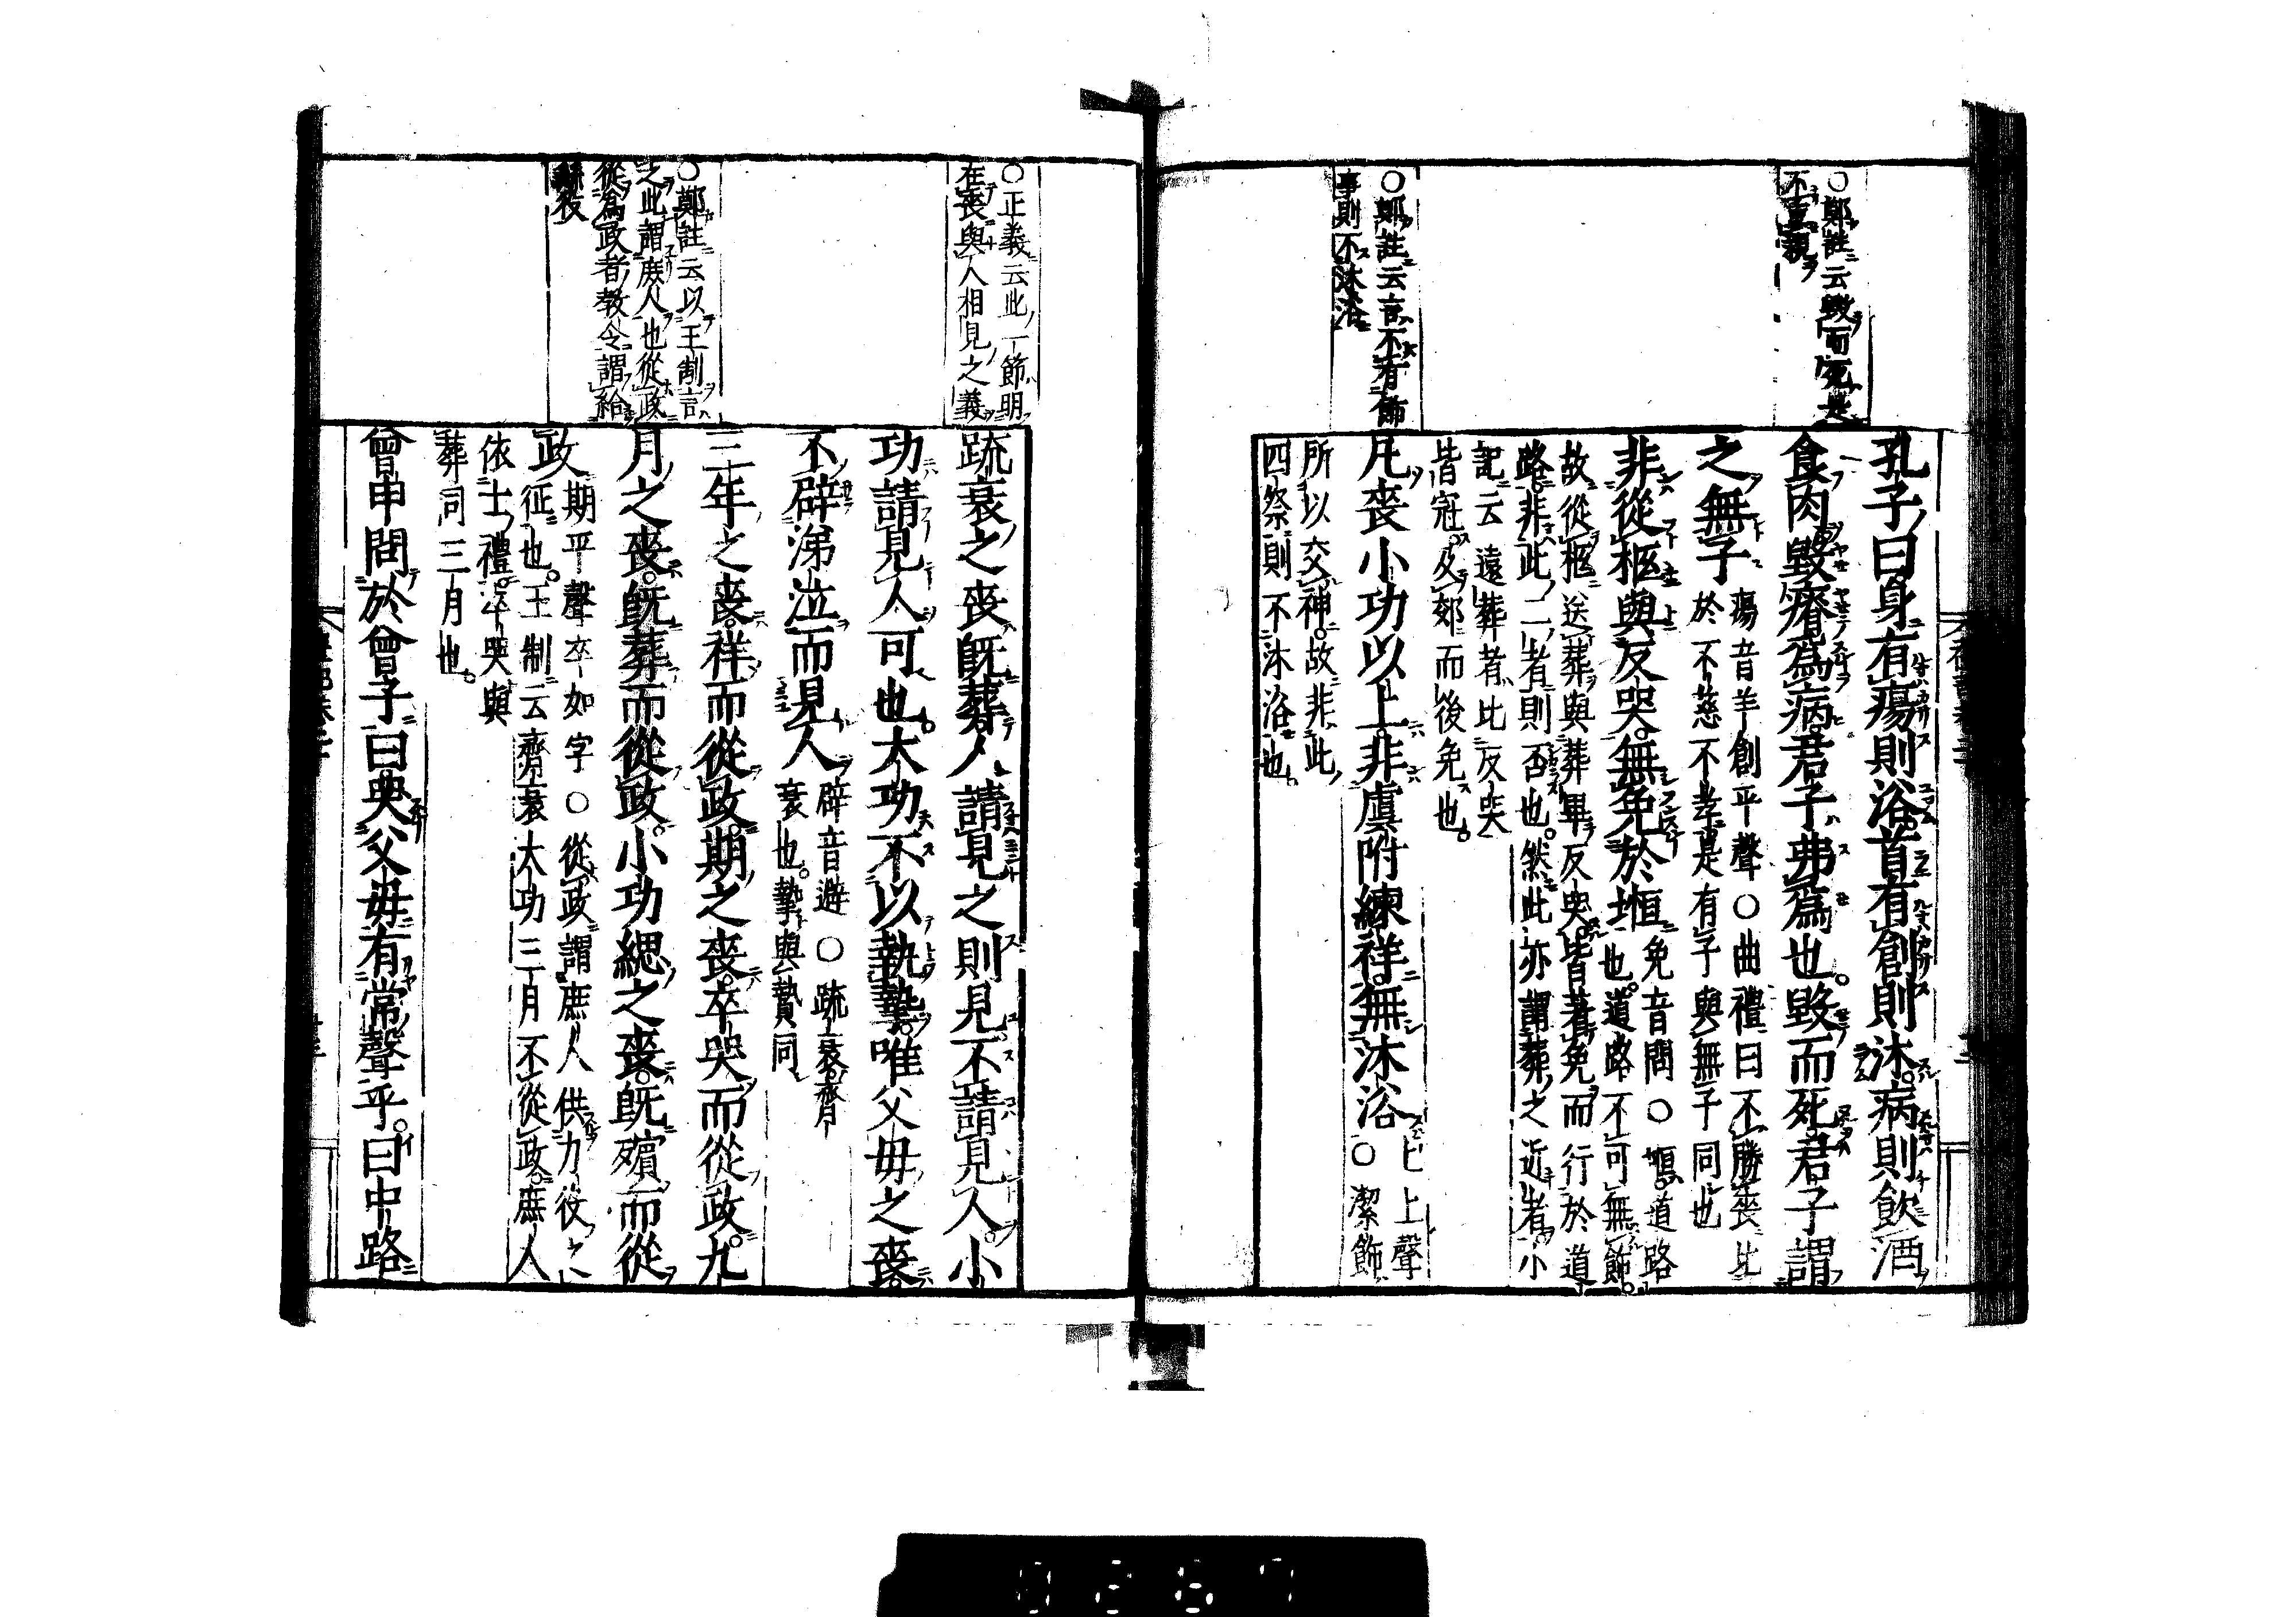 ○鄭註云毀而死是
不重親
○鄭註云言不有飾
事則不沐浴
孔子曰身有瘍則浴首有創則沐病則飲酒
食肉毀瘠爲病君子弗爲也毀而死君子謂
之無子
瘍音羊創平聲○曲禮曰不勝喪比
於不慈不孝是有子與無子同也
非從柩與反哭無免於堩
免音問○堩道路
也道路不可無飾
故從柩送葬與葬畢反哭皆著免而行於道
路非此二者則否也然此亦謂葬之近者小
記云遠葬者比反哭
皆冠及郊而後免也
凡喪小功以上非虞附練祥無沐浴
上上聲
○潔飾
所以交神故非此
四祭則不沐浴也
○正義云此一節明
在喪與人相見之義
○鄭註云以王制言
之此謂庶人也從政
從爲政者教令謂給
繇役
疏衰之喪旣葬人請見之則見不請見人小
功請見人可也大功不以執摯唯父母之喪
不辟涕泣而見人
辟音避○疏衰齊
衰也摯與贄同
三年之喪祥而從政期之喪卒哭而從政九
月之喪旣葬而從政小功緦之喪旣殯而從
政
期平聲卒如字○從政謂庶人供力役之
征也王制云齊衰大功三月不從政庶人
依士禮卒哭與
葬同三月也
曾申問於曾子曰哭父母有常聲乎曰中路
0267